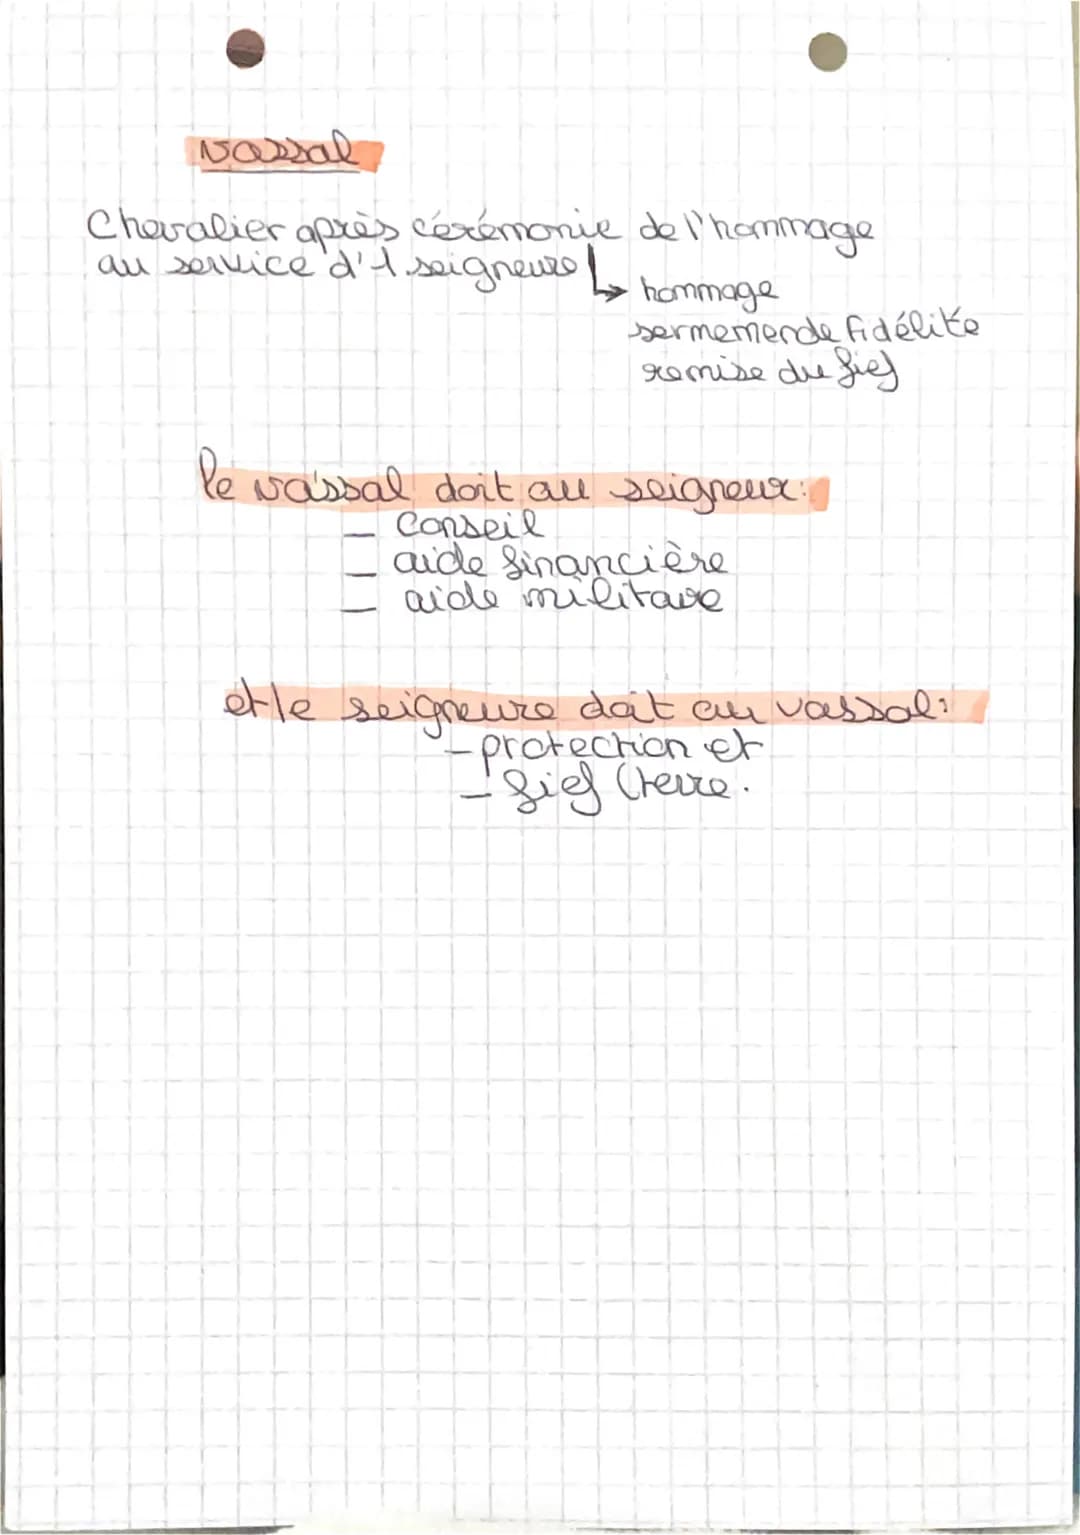 vassal
Chevalier après cérémonie de l'hommage
au service d'1.seigneure
↳ hommage
sermemende fidélité
remise du fief
le vassal doit au seigneur:
- Conseil
- aide financière
- aide militare
et le seigneure doit au vassal:
- protection et
- fief (terre.